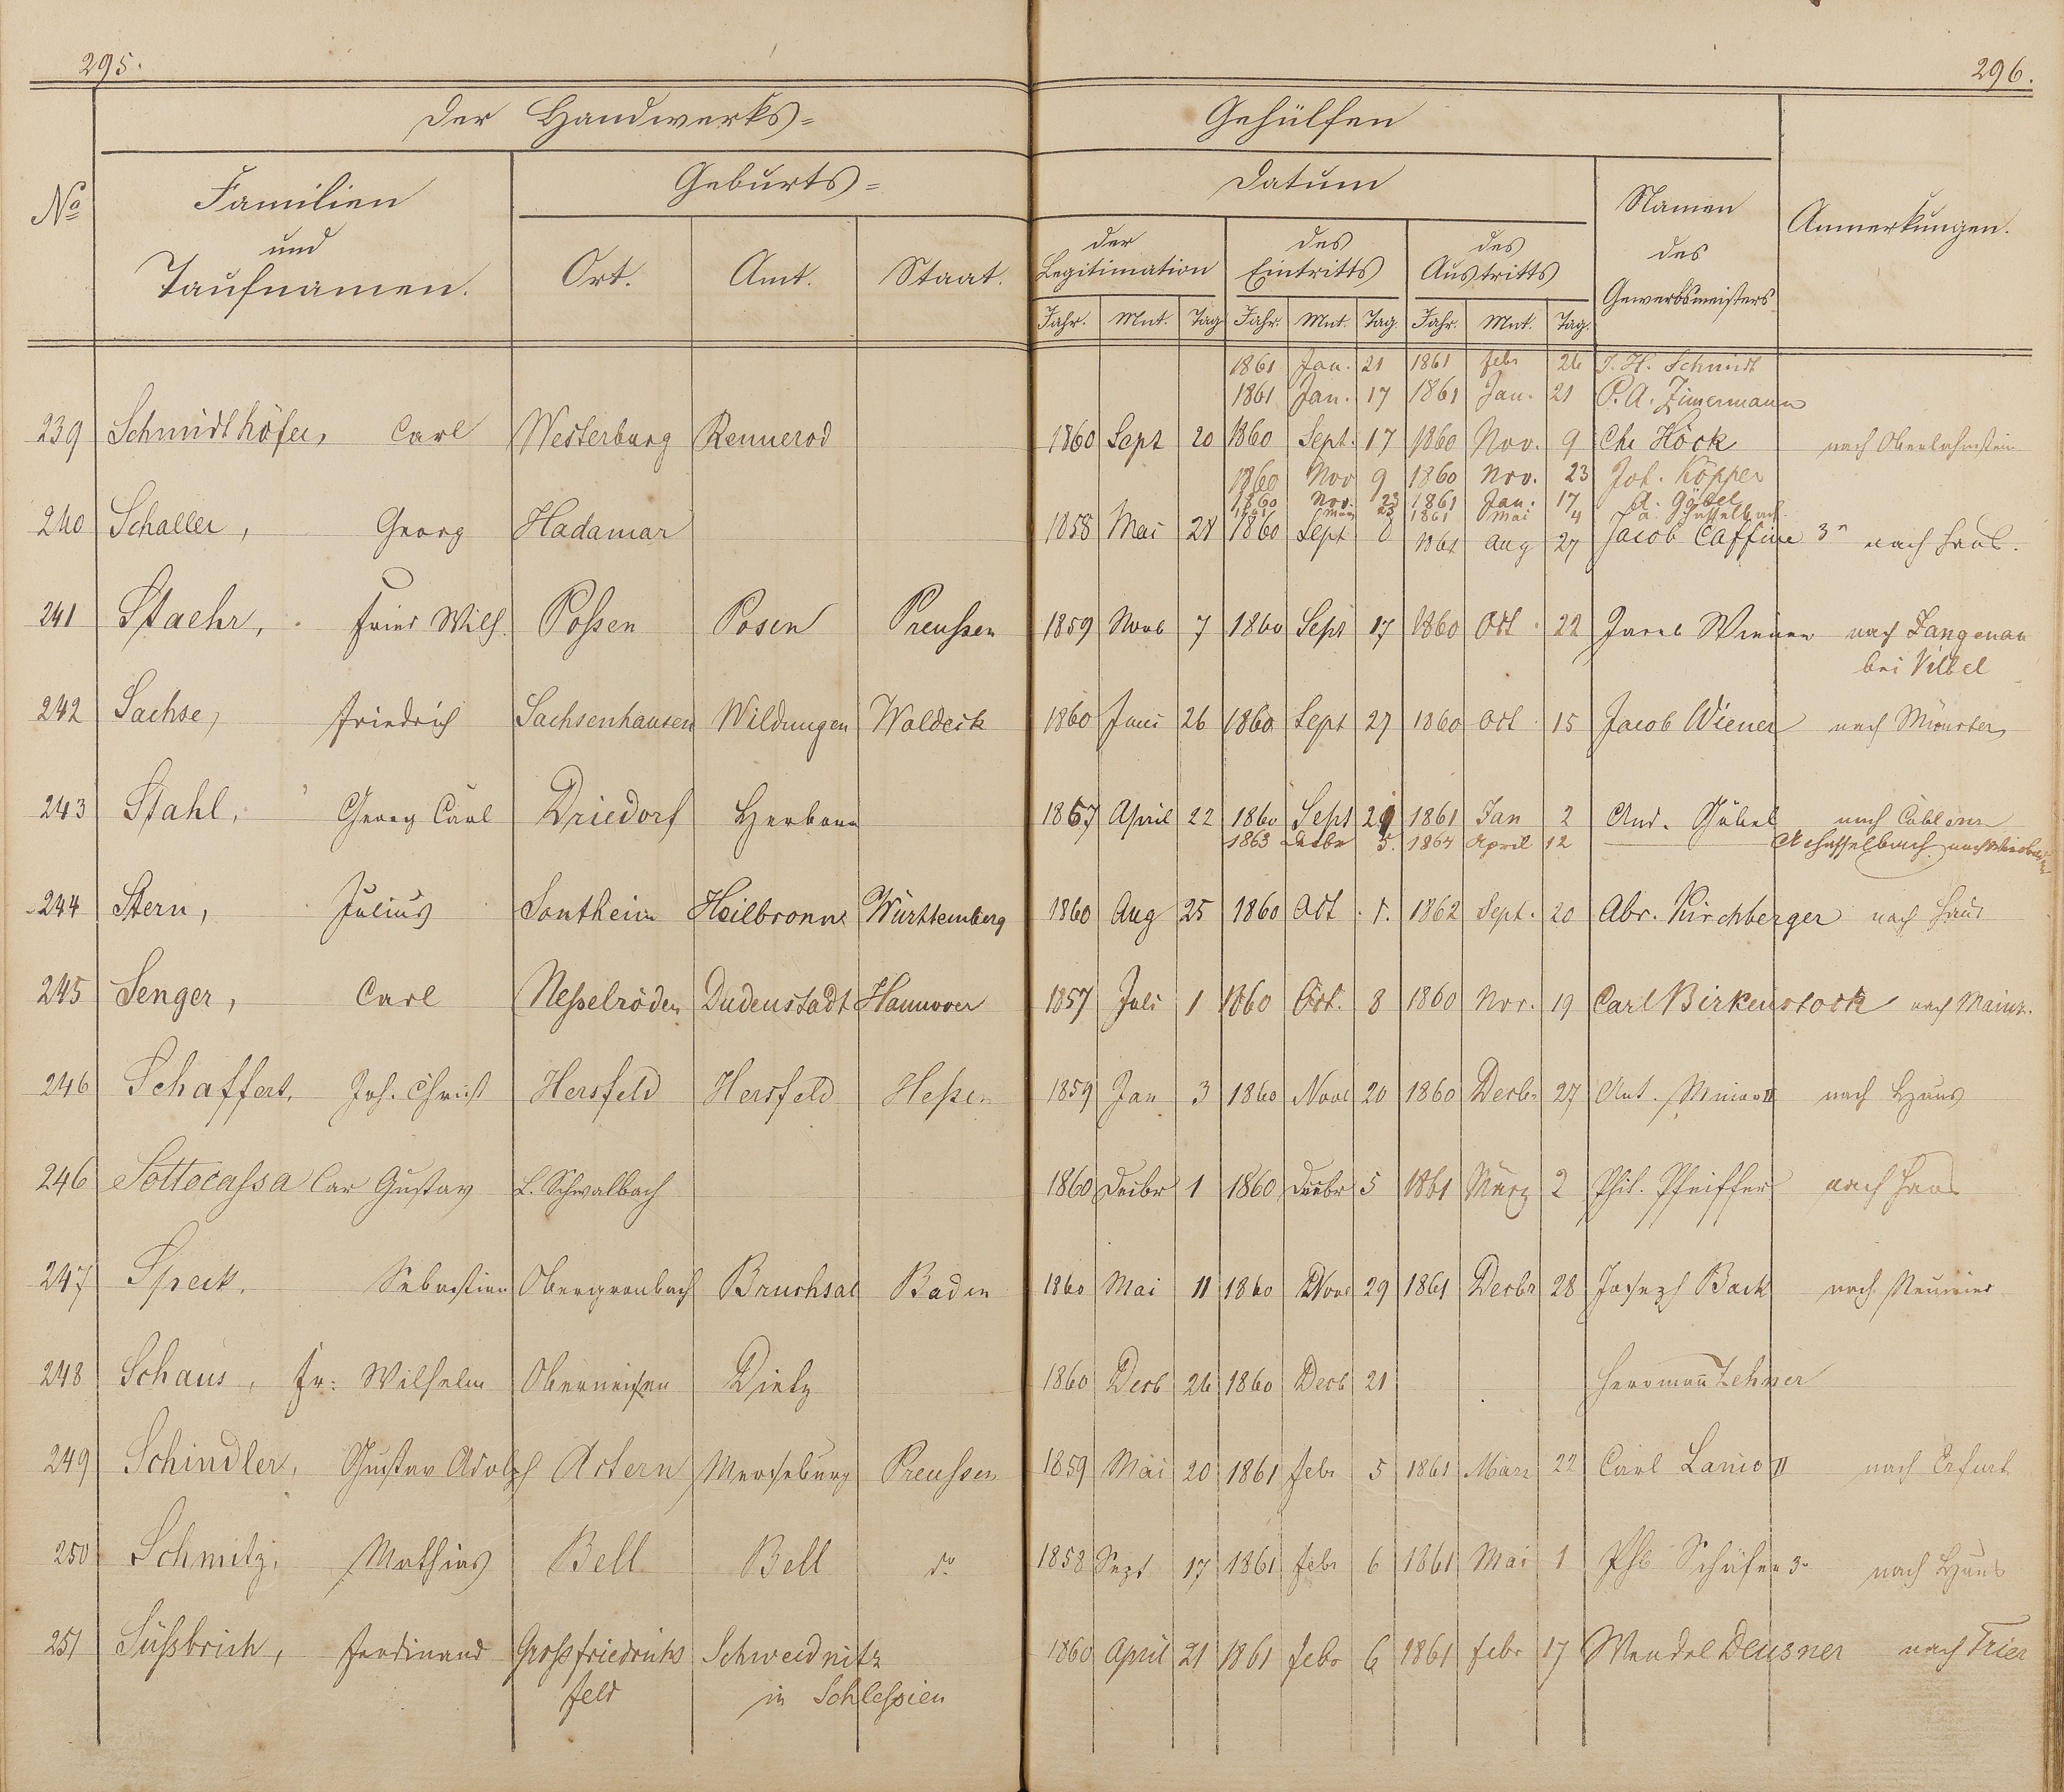 295.
296.
Der Handwerks= Gehülfen
No
Familien und Taufnamen.
Geburts=
Ort. Amt. Staat.
Datum
der Legitimation
des Eintritts
des Austritts
Namen des Gewerbsmeisters
Anmerkungen.
Jahr. Mnt. Tag Jahr. Mnt. Tag. Jahr. Mnt. Tag.
1861 Jan. 21 1861 febr 26 J. H. Schmidt
1861 Jan. 17 1861 Jan. 21 P. A. Zimermann
239 Schmidthöfer, Carl Westerburg Rennerod 1860 Sept 20 1860 Sept. 17 1860 Nov. 9 Chr Höck nach Oberlahnstein
1860 Nov 9 1860 Nov. 23 Joh. Köpper
1860 Nov. 23 1861 Jan. 17 A. Göbel
1861 März 23 1861 Mai 4 Hasselbach
240 Schaller, Georg Hadamar 1858 Mai 28 1860 Sept 8 1861 Aug 27 Jacob Caffine 3r nach Haus.
241 Staehr, Fried Wilh. Poßen Posen Preußen 1859 Novb 7 1860 Sept 17 1860 Oct 22 Jacob Wiener nach Langenau
bei Vilbel
242 Sachse, Friedrich Sachsenhausen Wildungen Waldeck 1860 Juni 26 1860 Sept 27 1860 Oct 15 Jacob Wiener nach Münster
243 Stahl, Georg Carl Driedorf Herborn 1857 April 22 1860 Sept 29 1861 Jan 2 And. Göbel nach Coblenz
1863 Decbr 5. 1864 April 12 A Hasselbach nach Wiesbaden
244 Stern, Julius Sontheim Heilbronn Württemberg 1860 Aug 25 1860 Oct. 1. 1862 Sept. 20 Abr. Kirchberger nach Haus
245 Senger, Carl Neßelröden Dudenstadt Hannover 1857 Juli 1 1860 Oct. 8 1860 Nov. 19 Carl Birkenstock nach Mainz.
246 Schaffert, Joh. Christ Hersfeld Hersfeld Heßen 1859 Jan 3 1860 Novb 20 1860 Decbr 27 Ant. Minor II nach Haus
246 Sottocaßa Car Gustav L. Schwalbach 1860 Decbr 1 1860 Decbr 5 1861 März 2 Phil. Pfeiffer nach Haus
247 Speck, Sebastian Obergrombach Bruchsal Baden 1860 Mai 11 1860 Novb 29 1861 Decbr 28 Joseph Back nach Neuwied
248 Schaus, Fr: Wilhelm Oberneisen Dietz 1860 Decb 26 1860 Decb 21 Hermann Zehner
249 Schindler, Gustav Adolph Artern Merseburg Preußen 1859 Mai 20 1861 febr 5 1861 März 22 Carl Lanio II nach Erfurt
250 Schmitz, Mathias Bell Bell do 1858 Sept 17 1861 febr 6 1861 Mai 1 Phl Schäfer 3r nach Haus
251 Süßbrich, Ferdinand Großfriedrichs Schweidnitz 1860 April 21 1861 febr 6 1861 febr 17 Wendel Deusner nach Trier
feld in Schleßien